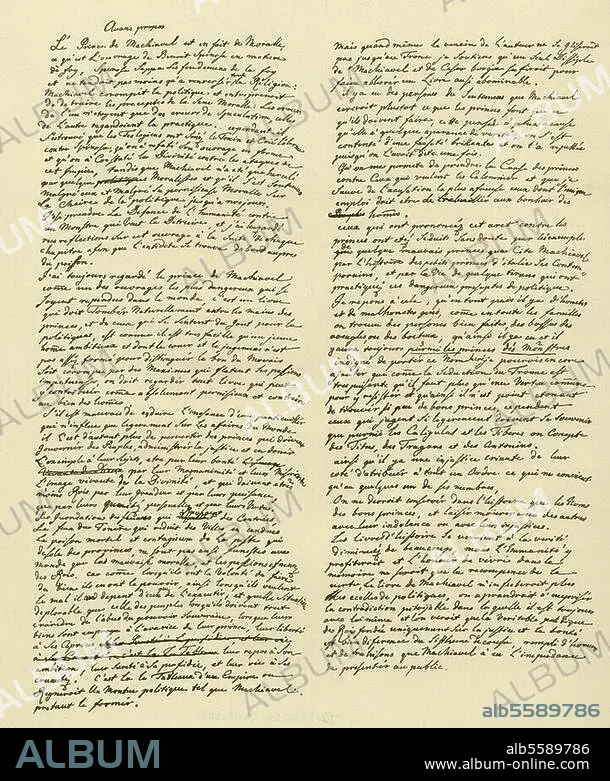 Avant propos
Le Prince de Machiavel est en fait de Moralle,
ce qu'est L'ouvrage de Benoit Spinosa en matiere
de foy, Spinosa Sappa Les fondemens de la foy
et ne tendoit pas moins qu'a renverser la Religion;
Machiavel corompit la politique et
de detruire les preceptes de la Sene Moralle: Les
de L'un n'etoyent que des de Speculation, celles
de L'autre regardoient la practique. cependent il
S'est trouvé que les Theologiens ont
contre Spinosa, qu'on a refuté Son ouvrage en forme
et qu'on a Constaté la Divinité contre les ataques
de cet impie, tandis que Machiavel n'a eté que harcelé
par quelques Moralistes et qu'il S'est Soutenu
Malgré eux et Malgré Sa pernicieuse Moralle Sur
La Chaire de la politique jusqu'a nos jours.
J'ose prendre La Defense de L'humanité contre
un Monstre qui Veut La Detruire, et j'ai hazardé
mes reflections Sur cet ouvrage a la Suite de chaque
chapitre afin que L'antidote Se trouva d'abord aupres
du poisson.
J'ai toujours regardé le prince de Machiavel
come un des ouvrages les plus dangereux qui Se
Soyent repandus dans le monde, c'est un livre
qui doit Tomber Naturellement entre les mains des
princes, et de ceux qui Se Sentent du Gout pour la
politique,
ambitieux et dont le cour et le jugement n'est
pas assez formé pour distinguer le bon du Mauvais
Soit corompu par des Maximes qui flatent Ses passions
impetueuses, on doit regarder tout livre qui peut
y contribuer come absolument pernicieux et contraire
au bien des homes.
S'il est mauvais de seduire L'inosance d'un particulier
qui n'influe que legerement Sur les afaires du Monde
il L'est d'autant plus de pervertir des princes qui doivent
Gouverner des peuples, administrer la justice et en doner
L'exemple a leur Sujets, etre par leur bonté
par leur Magnanimité et leur Misericorde
L'image vivante de la Divinité, et qui doivent
moins Rois par leur grandeur et par leur puissance
que par leurs qualités personelles et par leurs Vertus.
Le feu du Tonere qui reduit des Villes en cendres
Le poison mortel et contagieux de la peste qui
desole des provinces, ne Sont pas aussi funestes au
monde que la mauvaise morale et les passions efrenées
des Rois. car come lorsqu'ils ont la Volonté de faire
du bien ils en ont le pouvoir, aussi lorsqu'ils veulent
le mal il ne depend d'eux de L'executer, et quelle situation
deplorable que celle des peuples lorsqu'ils doivent tout
craindre de L'abus du pouvoir Souverain, lorsque leurs
biens Sont en proye a L'avarice de leur prince, leur liberté
a Ses Caprices,
leur repos a Son
ambition, leur Sureté a la perfidie, et leur vie a Ses
cruautés! C'est la le Tableau d'un Empire ou
Regneroit Un Monstre politique tel que Machiavel
pretend le former.
mais quand même le venin de L'auteur ne Se glisseroit
pas jusqu'au Trone, je Soutiens qu'un Seul Disciple
de Machiavel et de Cesar Borgia Sufiroit pour
faire abhorer un Livre aussi abominable.
il y a eu des persones de Sentiment que Machiavel
ecrivoit plustot ce que les princes font, que ce
qu'ils doivent faire, cette pensée a plu a cause
qu'elle a quelque aparance de verité, on S'est
contenté d'une fauseté brillante et on L'a repettée
puisqu'on L'avoit dite une fois.
Qu'on me permete de prendre la Cause des princes
contre Ceux qui veulent les Calomnier et que je
Sauve de L'acusation la plus afreuse ceux dont L'unique
emploi doit etre de travailler au bonheur des
homes.
ceux qui ont prononcé cet arest contre les
princes ont eté Seduits Sans doute par les examples
de quelques mauvais princes que Cite Machiavel
par L'histoire des petits princes d'italie Ses Contem
porains, et par la Vie de quelques tirans qui ont
practiqué ces dangereux preceptes de politique.
Je repons a cela, qu'en tout païs il y a d'honetes
et de malhonetes gens, come en toutes les familles
on trouve des persones bien faites des bossus des
aveugles ou des boiteux, qu'ainsi il y a eu et il
y aura toujours parmi les princes des Monstres
indignes de porter ce Nom
que come la Seduction du Trone est
tres puisante qu'il faut plus qu'une Vertu comune
pour y resister et qu'ainsi il n'est point etonant
de trouver Si peu de bons princes. cependent
ceux qui jugent Si legerement doivent Se Souvenir
que parmis des Caligulas et des Tibères on Compte
des Titus, des Trajans et des Antonins.
ainsi qu'il y a une injustice criante de leur
part d'atribuer a tout un Ordre ce qui ne convient
qu'an quelques uns de Ses membres.
On ne devroit conserver dans L'histoire que les Noms
des bons princes, et laisser mourir ceux des autres
avec leur indolance ou avec leurs injustices.
Les Livres d'histoire Se veroient a la verité
diminués de beaucoup, mais L'Humanité y
profiteroit et L'honeur de vivre dans la
memoire ne Seroit que la recompense de la
vertu. le livre de Machiavel n'infecteroit plus
les ecolles de politiques, on aprendroit a mepriser
la contradiction pitoyable dans la quelle il est toujours
avec lui meme et on veroit que la Veritable politique
des Rois fondée uniquement Sur la justice et la bonté
est bien diferente du Systheme decousu rempli d'horeur
et de trahisons que Machiavel a eu L'impudence
de presenter au public.
ALBUM
alb5589786
ALBUM
alb5589786
www.album-online.com